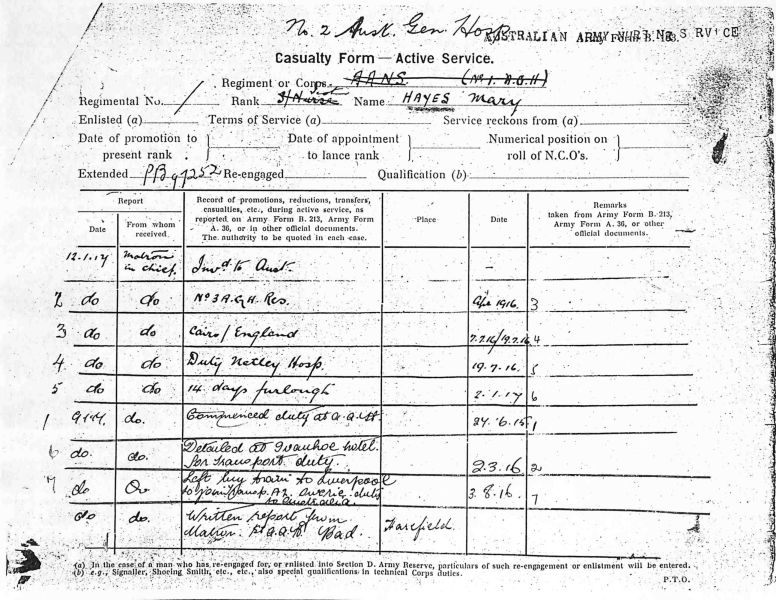 No. 2 Aust. Gen. Hosp
AUSTRALIAN ARMY NURSING SERVICE
Army Form B. 103.
Casualty Form — Active Service.
Regiment or Corps AANS. (No 1. A.G.H)
Regimental No. / Rank S/Nurse Sister Name HAYES Mary
Enlisted (a) Terms of Service (a) Service reckons from (a)
Date of promotion to present rank Date of appointment to lance rank Numerical position on roll of N.C.O's.
Extended Re-engaged Qualification (b)
Report
Date From whom received.
Record of promotions, reductions, transfers, casualties, etc., during active service, as reported on Army Form B. 213, Army Form A. 36, or in other official documents. The authority to be quoted in each case.
Place
Date
Remarks taken from Army Form B. 213, Army Form A. 36, or other official documents.
12.1.17 Matron in chief. Invd to Aust. —
2 do do No 3 A.G.H. Res. 1916. 3
3 do do Cairo / England 4
4 do do Duty Netley Hosp. 19.7.16. 5
5 do do 14 days furlough 2.1.17 6
1 do. Commenced duty at 24.6.15 1
6 do. do. Detailed at Ivanhoe hotel.
for transport duty. 2.3.16 2
7 do Left by train to Liverpool
to join transp. A2 duty
to Australia 3.8.16. 7
do do. Written report from
Matron. Bad. Harefield.
(a) In the case of a man who has re-engaged for, or enlisted into Section D. Army Reserve, particulars of such re-engagement or enlistment will be entered.
(b) e.g., Signaller, Shoeing Smith, etc., etc., also special qualifications in technical Corps duties.
P.T.O.